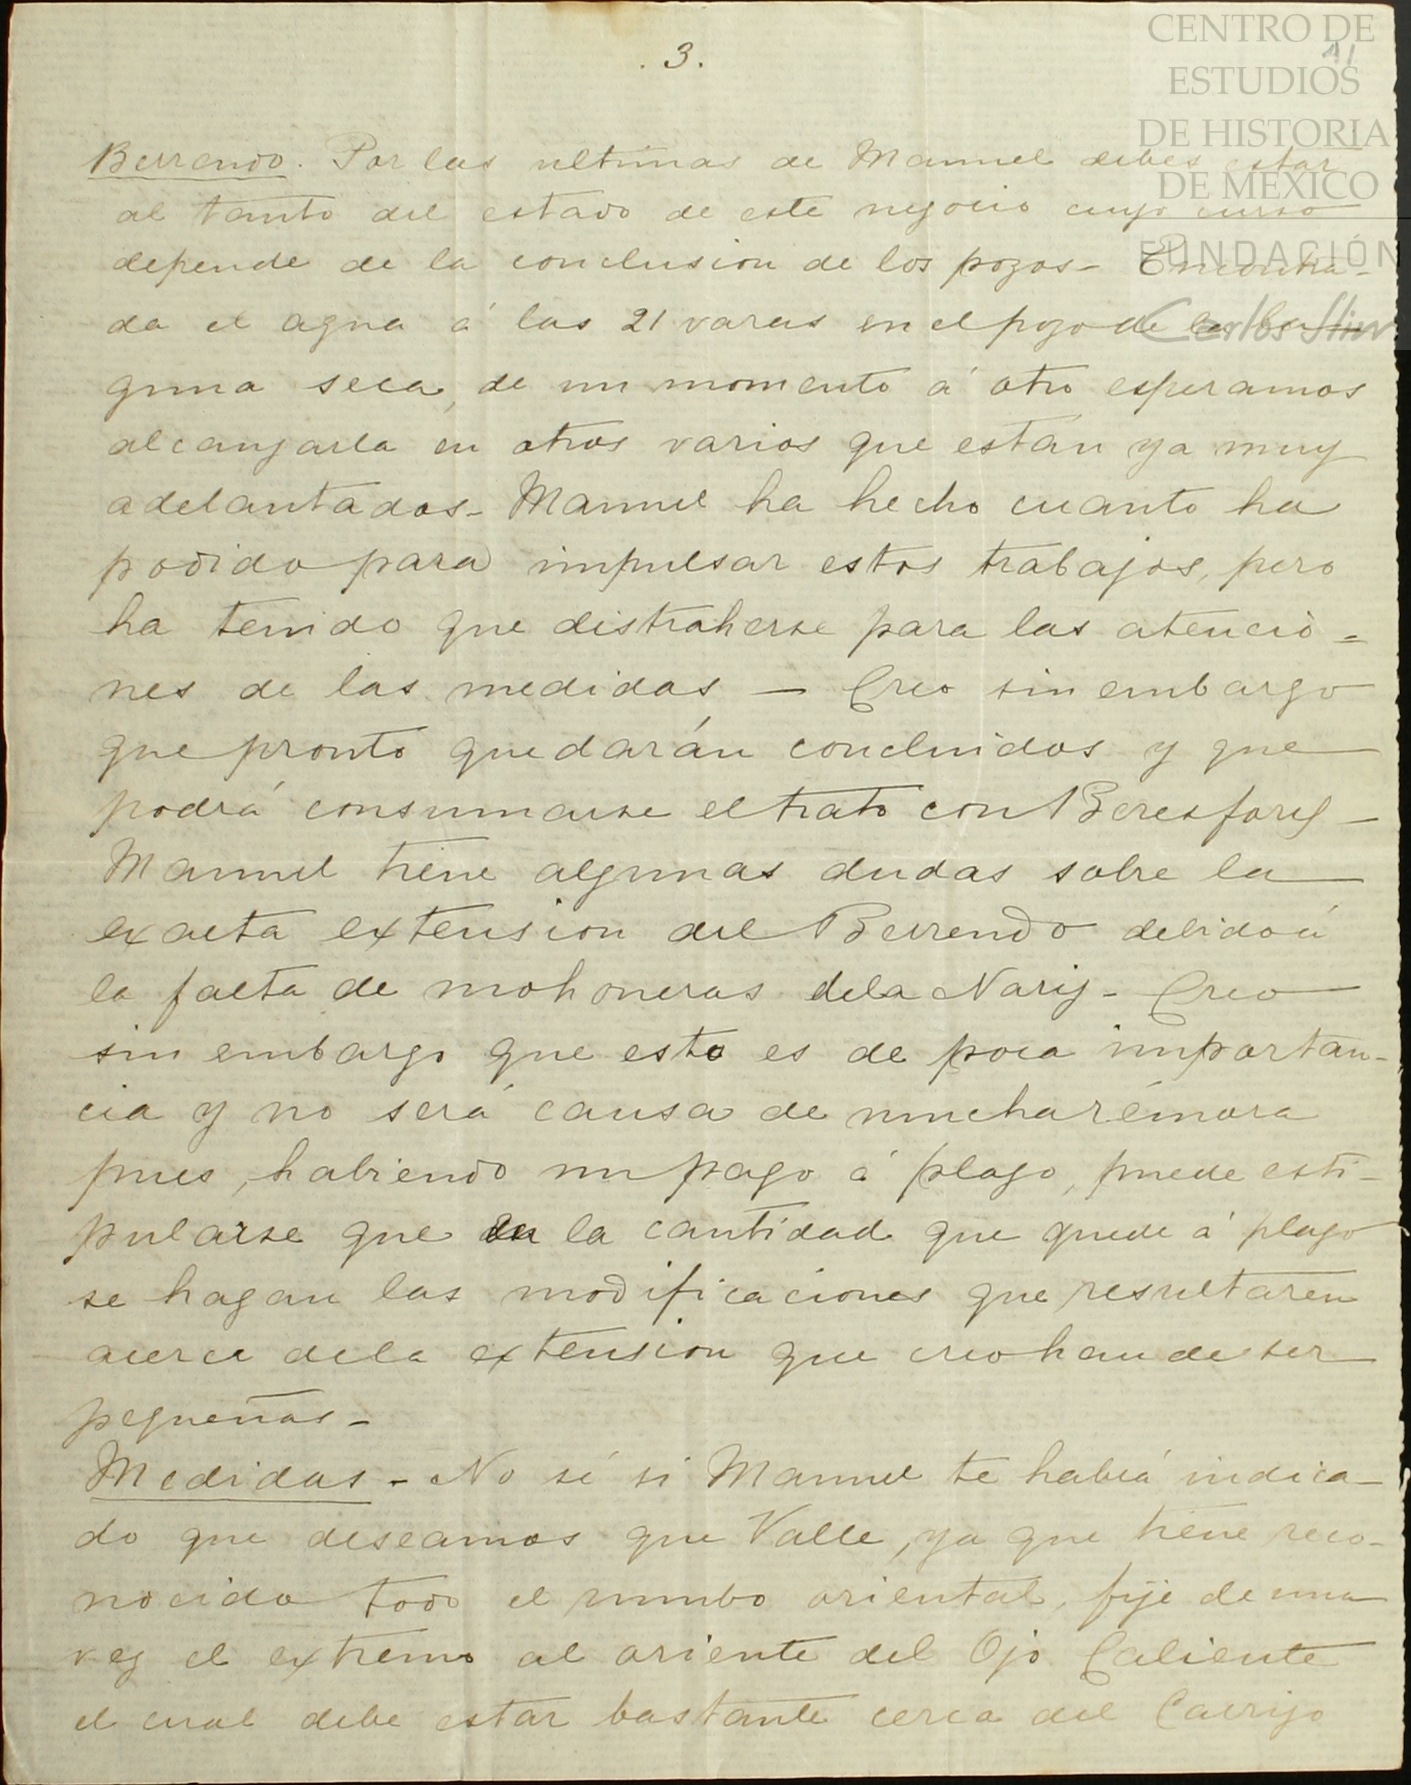 3.
CENTRO DE
ESTUDIOS
DE HISTORIA
DE MEXICO
FUNDACIÓN
Carlos Slim
Berrendo. Por las ultimas de Manuel debes estar
al tanto del estado de este negocio cuyo curso
depende de la conclusion de los pozos- Encontra-
da el agua á las 21 varas en el pozo de la la-
guna seca, de un momento á otro esperamos
alcanzarla en otros varios que están ya muy
adelantados- Manuel ha hecho cuanto ha
podido para impulsar estos trabajos, pero
ha tenido que distraherse para las atencio=
nes de las medidas - Creo sin embargo
que pronto quedarán concluidos y que
podrá consumarse el trato con Beresford-
Manuel tiene algunas dudas sobre la
exacta extension del Berrendo debido á
la falta de mohoneras de la Nariz- Creo
sin embargo que esto es de poca importan-
cia y no será causa de mucha rémora
pues, habiendo un pago á plazo, puede esti-
pularse que en la cantidad que quede á plazo
se hagan las modificaciones que resultaren
acerca de la extension que creo han de ser
pequeñas-
Medidas- No sé si Manuel te habrá indica-
do que deseamos que Valle, ya que tiene reco-
nocido todo el rumbo oriental, fije de una
vez el extremo al oriente del Ojo Caliente
el cual debe estar bastante cerca del Carrizo